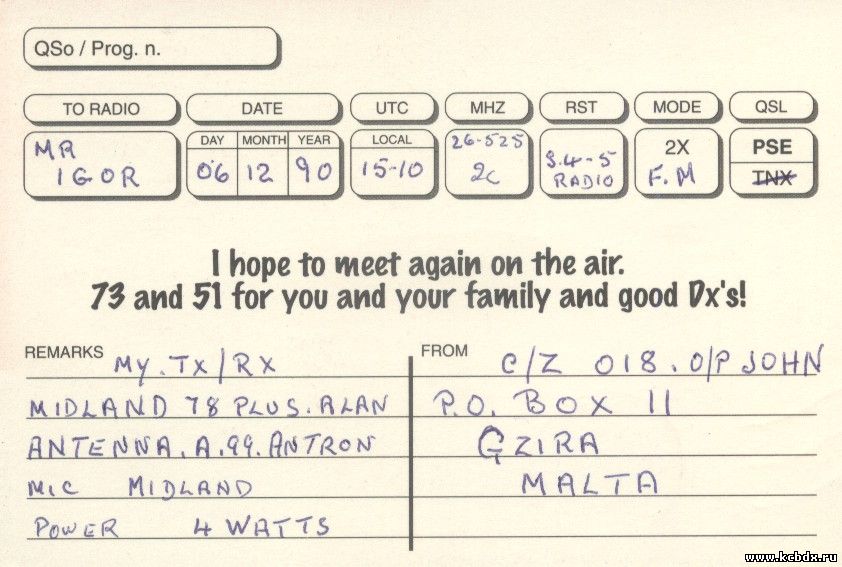 QSo / Prog. n.
TO RADIO DATE UTC MHZ RST MODE QSL
MR IGOR
DAY MONTH YEAR
06 12 90
LOCAL
15-10
26-525
2c
S.4-5
RADIO
2X
F.M
PSE
TNX
I hope to meet again on the air.
73 and 51 for you and your family and good Dx's!
REMARKS MY.TX/RX
MIDLAND 78 PLUS.ALAN
ANTENNA.A.99.ANTRON
MIC MIDLAND
POWER 4 WATTS
FROM C/Z 018.O/P JOHN
P.O. BOX 11
GZIRA
MALTA
www.kcbdx.ru